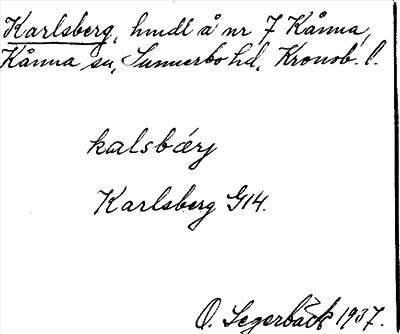 Karlsberg, hmdl å nr 7 Kånna,
Kånna sn, Sunnerbo hd, Kronob. l.
kalsbærj
Karlsberg G14.
O. Segerbäck 1937.